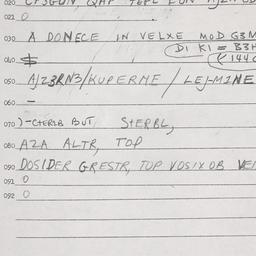 020
021 0
030 A DONECE IN VELXE MOD G3N
DI KI = B3H
040 $ (£ 1440
050 AJZ3RN3/KUPERME / LEJ-M1NE
060 –
070 )-CTERLB BUT, STERBL,
080 AZA ALTR, TOP
090 DOSIDER GRESTR, TOP VOSIX OB VEI
091 0
092 0